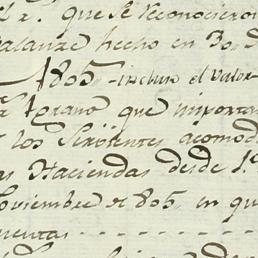 que se reconociero
alanze hecho en 30. D
1805 - incluso el valor
grano que importa
los Sirvientes acomod
as Haciendas desde 1.º
oviembre de 805. en qu
uentas - - - - - - - -